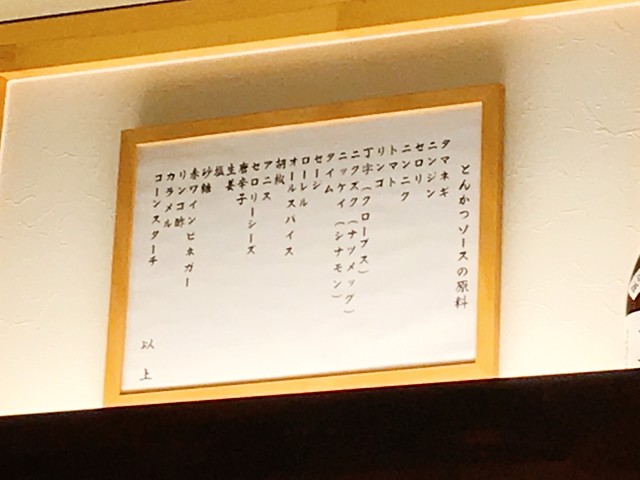 とんかつソースの原料
タマネギ
ニンジン
セロリ
ニンニク
トマト
リンゴ
丁字(クローブス)
ニクズク(ナツメッグ)
ニッケイ(シナモン)
タイム
セージ
ローレル
オールスパイス
胡椒
アニス
セロリーシーズ
唐辛子
生姜
塩
砂糖
赤ワインビネガー
リンゴ酢
カラメル
コーンスターチ
以上